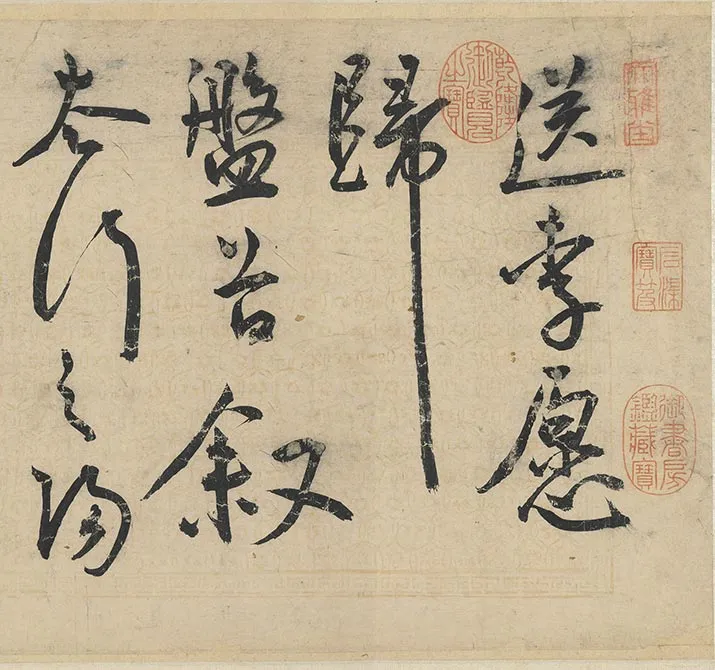 石渠寶笈
御書房鑑藏寶
送李愿
乾隆御覽之寶
歸
盤谷叙
太行之陽